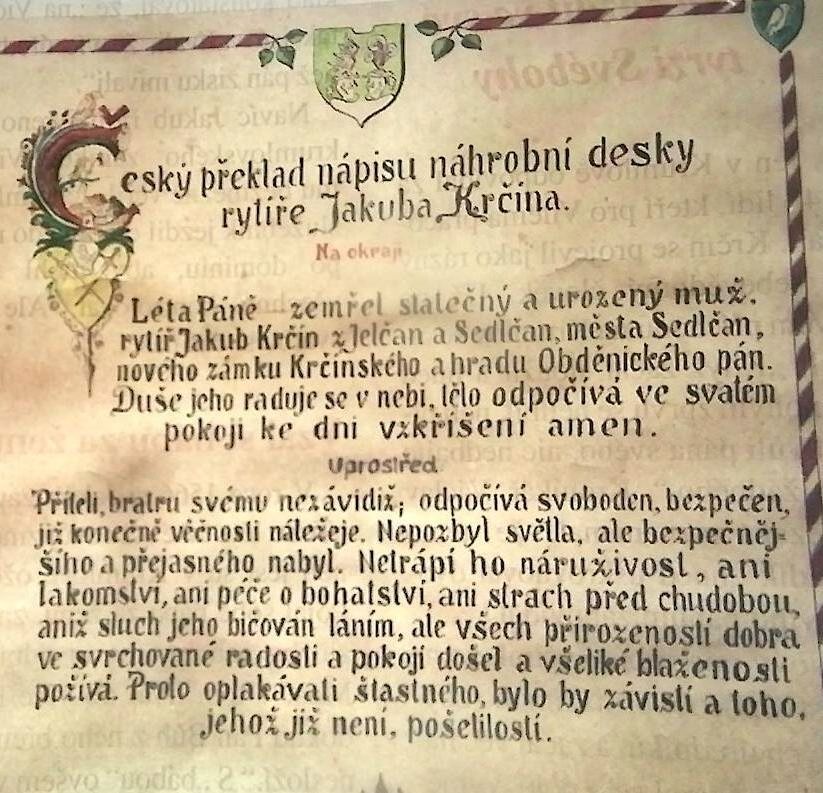 Český překlad nápisu náhrobní desky
rytíře Jakuba Krčína.
Na okraji
Léta Páně – zemřel statečný a urozený muž,
rytíř Jakub Krčín z Jelčan a Sedlčan, města Sedlčan,
nového zámku Krčínského a hradu Obděnického pán.
Duše jeho raduje se v nebi, tělo odpočívá ve svatém
pokoji ke dni vzkříšení amen.
Uprostřed
Příteli, bratru svému nezáviď; odpočívá svoboden, bezpečen,
již konečně věčnosti náležeje. Nepozbyl světla, ale bezpečněj-
šího a přejasného nabyl. Netrápí ho náruživost, ani
lakomství, ani péče o bohatství, ani strach před chudobou,
aniž sluch jeho bičován láním, ale všech přirozeností dobra
ve svrchované radosti a pokoji došel a všeliké blaženosti
požívá. Proto oplakávati šťastného, bylo by závistí a toho,
jehož již není, pošetilostí.